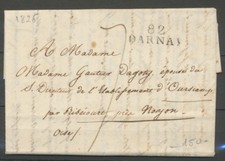 1826
82
DARNAY
A Madame
Madame Gautier Dagoty, épouse du
S. Directeur de l'Etablissement d'Ourscamp
par Ribécourt près Noyon
Oise
150